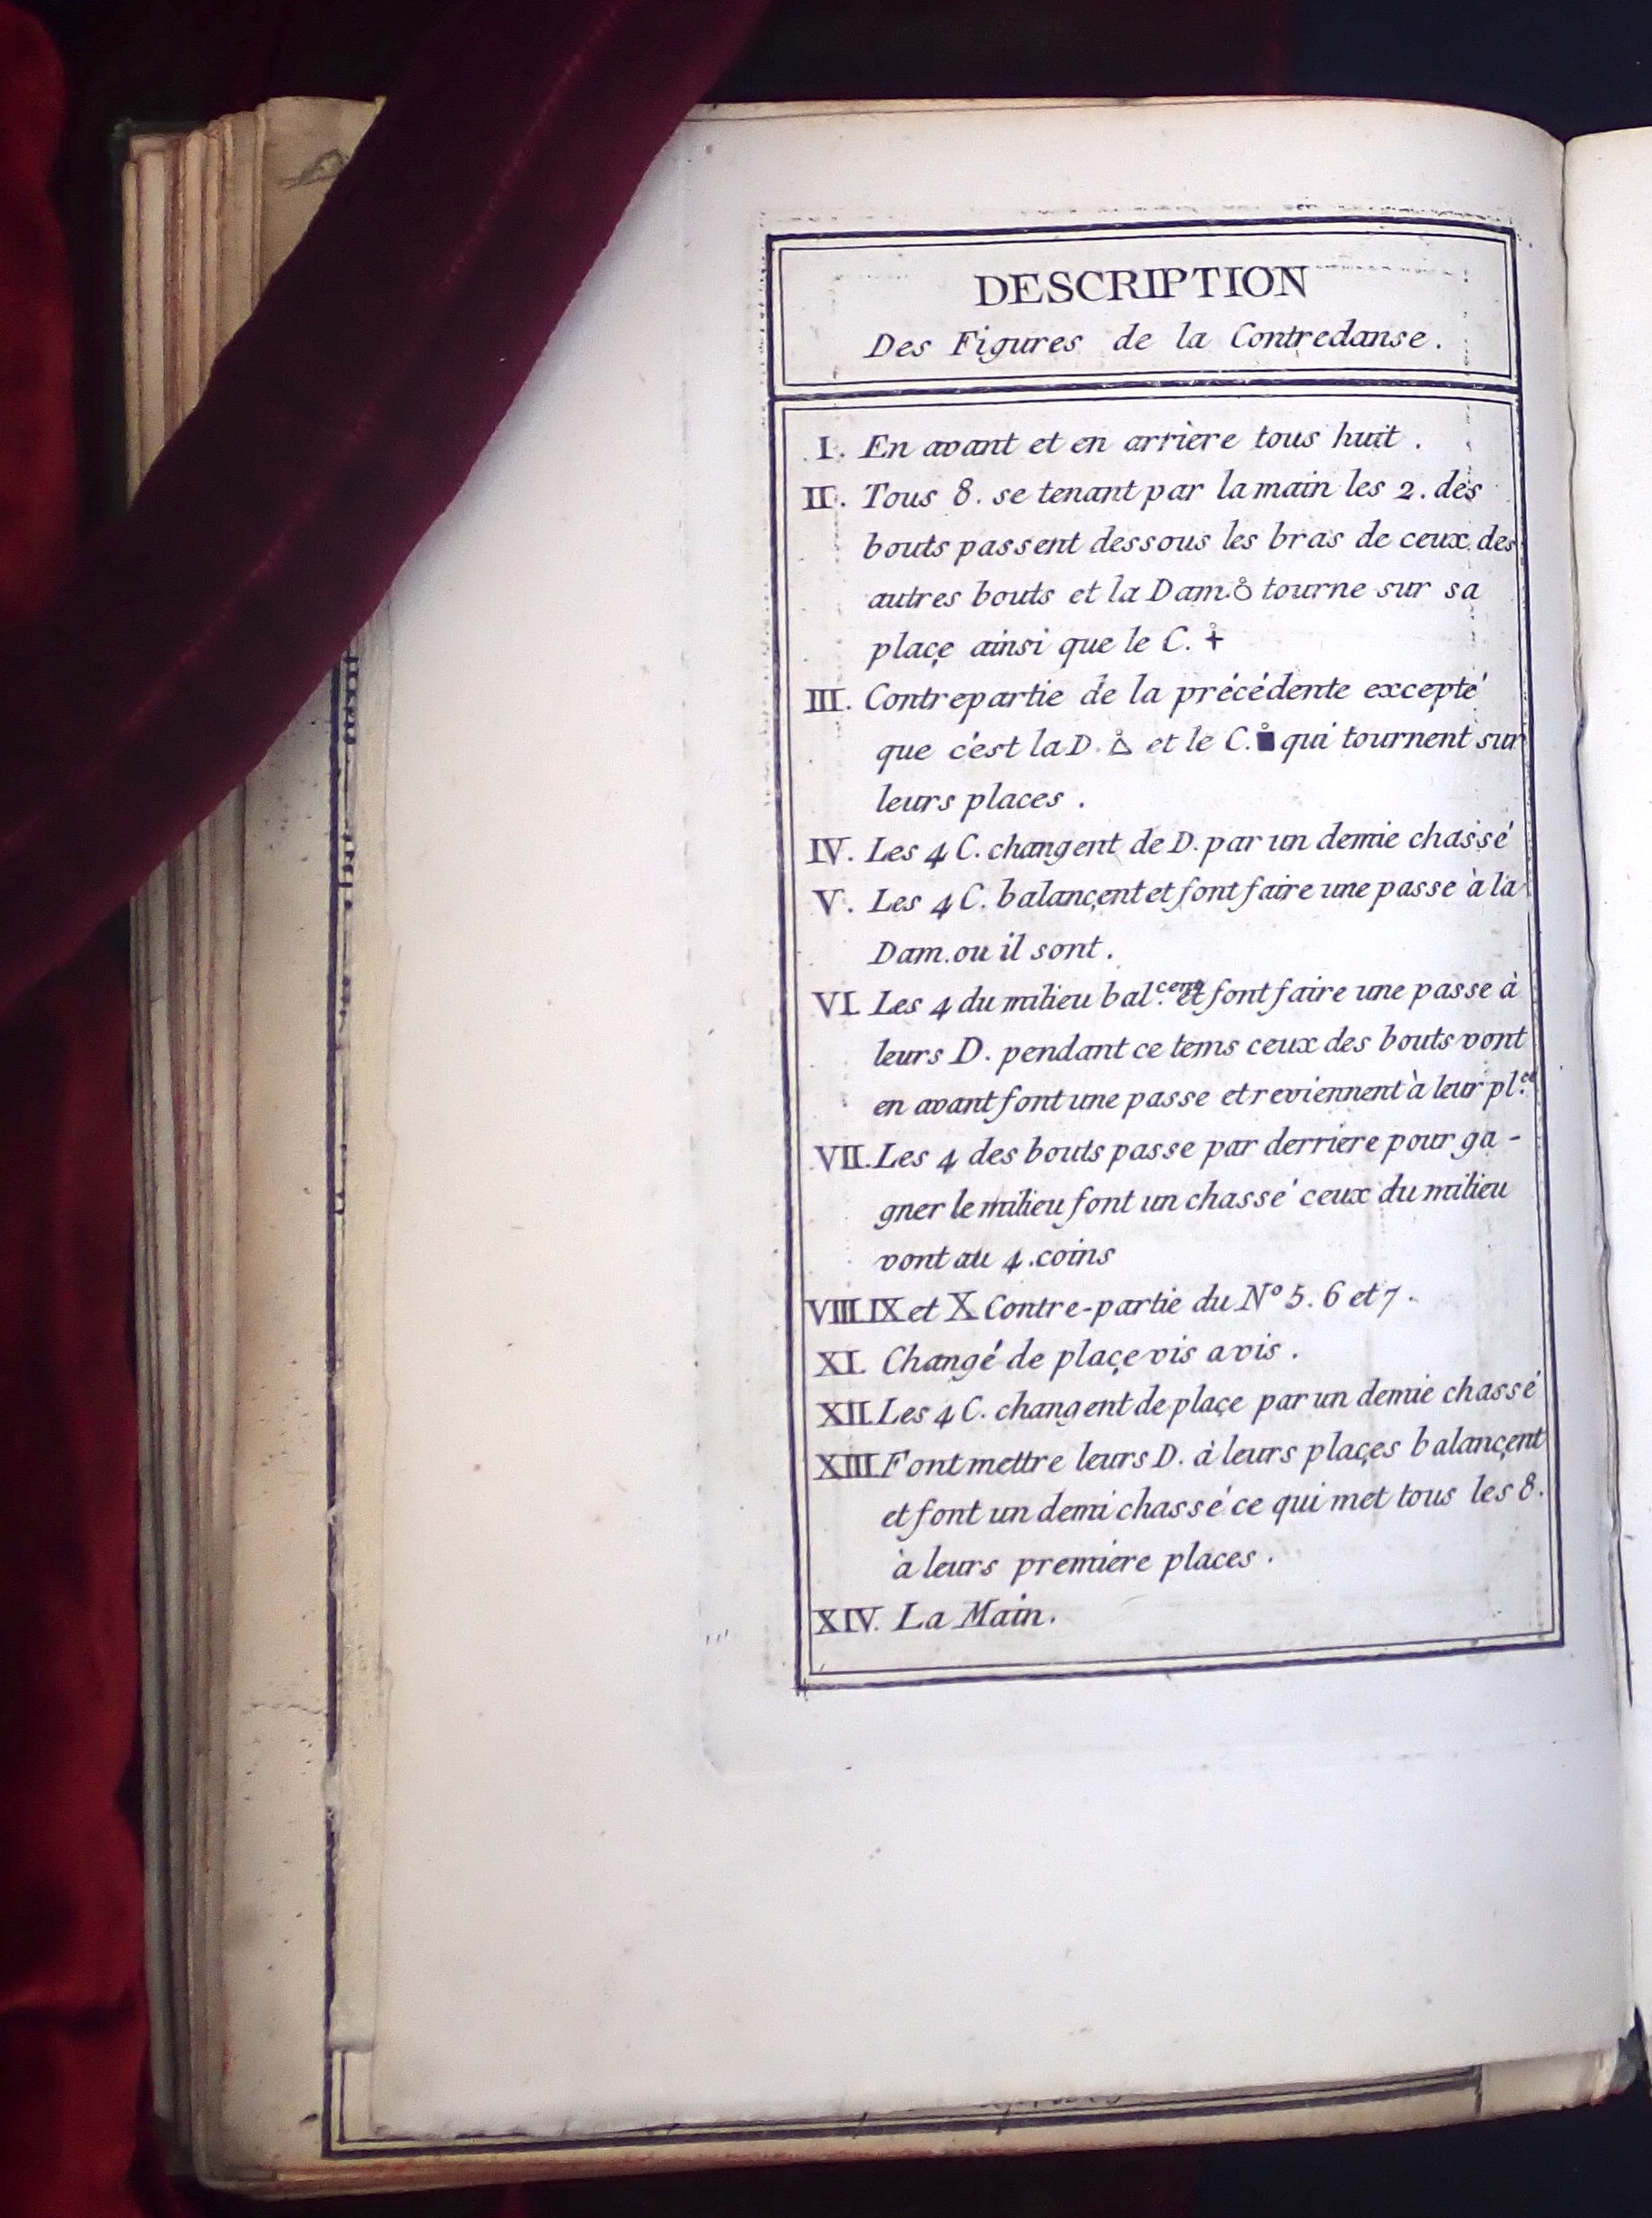 DESCRIPTION
Des Figures de la Contredanse.
I. En avant et en arriere tous huit.
II. Tous 8. se tenant par la main les 2. des
bouts passent dessous les bras de ceux des
autres bouts et la Dam. tourne sur sa
plaçe ainsi que le C.
III. Contrepartie de la précédente excepté
que c'est la D. et le C. qui tournent sur
leurs places.
IV. Les 4 C. changent de D. par un demie chassé
V. Les 4 C. balançent et font faire une passe à la
Dam. ou il sont.
VI. Les 4 du milieu bal. et font faire une passe à
leurs D. pendant ce tems ceux des bouts vont
en avant font une passe et reviennent à leur pl.ce
VII. Les 4 des bouts passe par derriere pour ga-
gner le milieu font un chassé ceux du milieu
vont au 4. coins
VIII. IX et X Contre-partie du N° 5. 6 et 7.
XI. Changé de plaçe vis a vis.
XII. Les 4 C. changent de plaçe par un demie chassé
XIII. Font mettre leurs D. à leurs plaçes balançent
et font un demi chassé ce qui met tous les 8.
à leurs premiere places.
XIV. La Main.